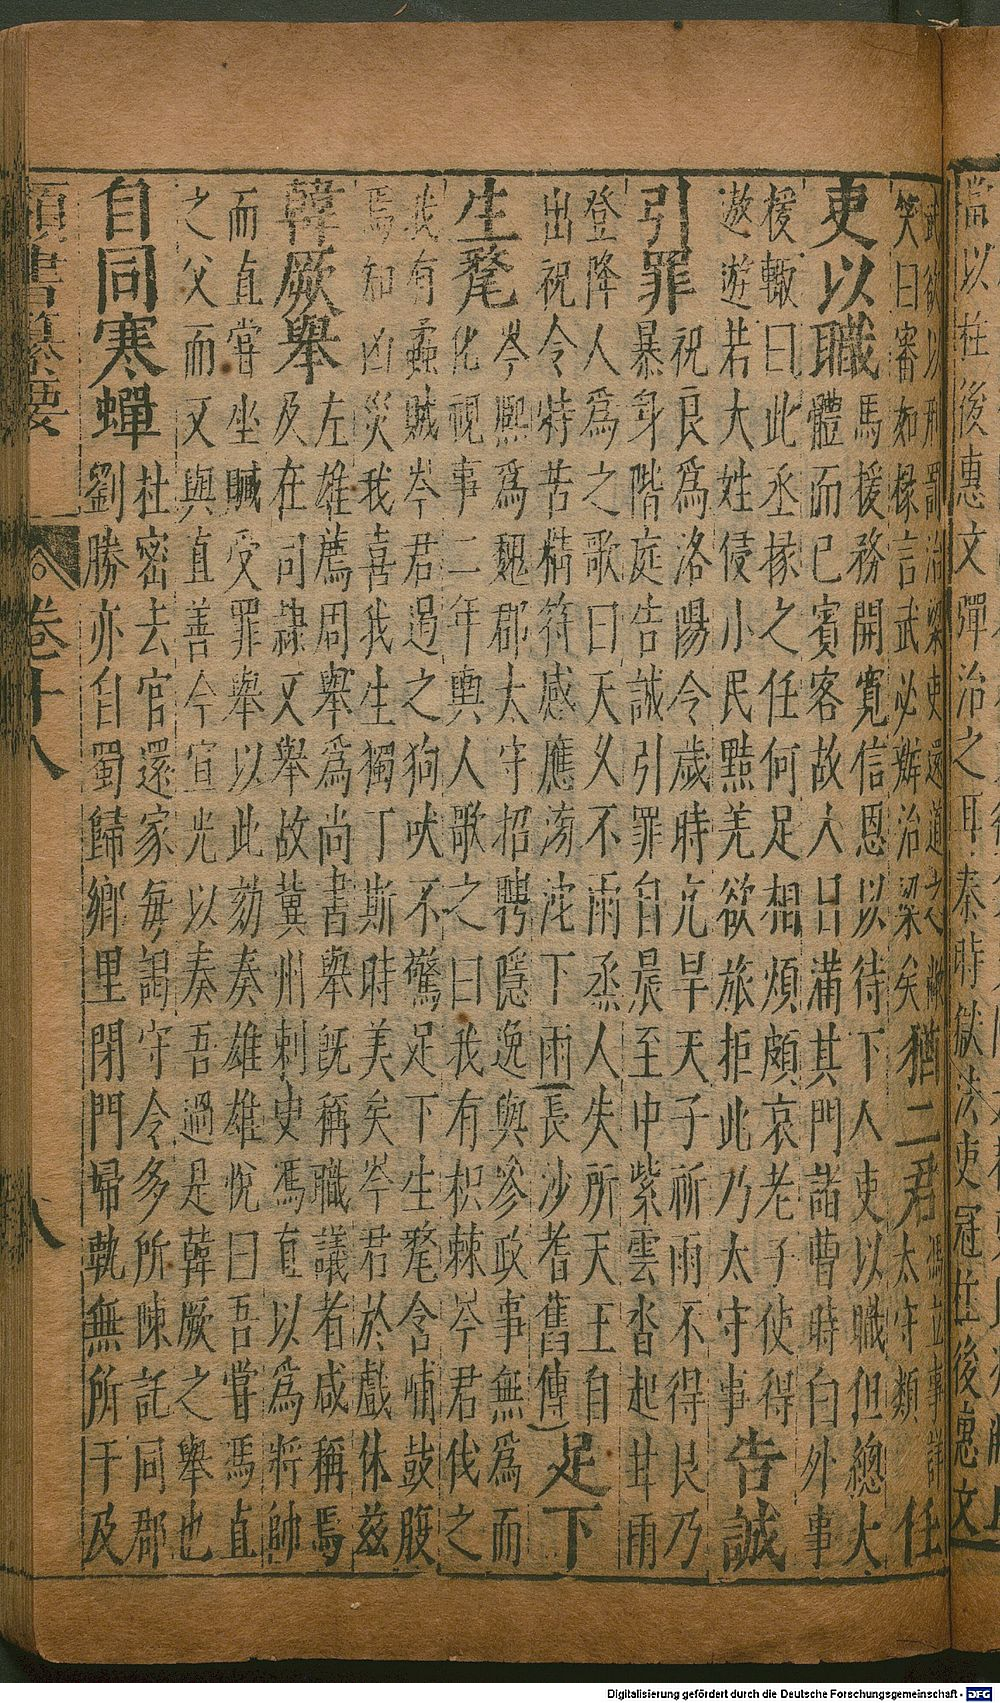 當以柱後惠文彈治之耳秦時獄法吏冠柱後惠文
武欲以刑罰治梁吏還道之敞
笑曰審如掾言武必辦治梁矣
猶二君
馮立事詳
太守類
任
吏以職
馬援務開寬信恩以待下人吏以職但總大
體而已賓客故人日滿其門諸曹時白外事
援輒曰此丞掾之任何足相煩頗哀老子使得
遨遊若大姓侵小民黠羌欲旅拒此乃太守事
告誠
引罪
祝良為洛陽令歲時亢旱天子祈雨不得良乃
暴身階庭告誠引罪自晨至中紫雲沓起甘雨
登降人為之歌曰天久不雨烝人失所天王自
出祝令特苦精符感應滂沱下雨(長沙耆舊傳)
足下
生氂
岑熙為魏郡太守招聘隱逸與參政事無為而
化視事二年輿人歌之曰我有枳棘岑君伐之
我有蟊賊岑君遏之狗吠不驚足下生氂含哺鼓腹
焉知凶災我喜我生獨丁斯時美矣岑君於戲休茲
韓厥舉
左雄薦周舉為尚書舉既稱職議者咸稱焉
及在司隸又舉故冀州刺史馮直以為將帥
而直嘗坐贓受罪舉以此劾奏雄雄悅曰吾嘗焉直
之父而又與直善今宣光以奏吾過是韓厥之舉也
自同寒蟬
杜密去官還家每謁守令多所陳託同郡
劉勝亦自蜀歸鄉里閉門婦軌無所干及
類書纂要 卷十八 八
Digitalisierung gefördert durch die Deutsche Forschungsgemeinschaft - DFG